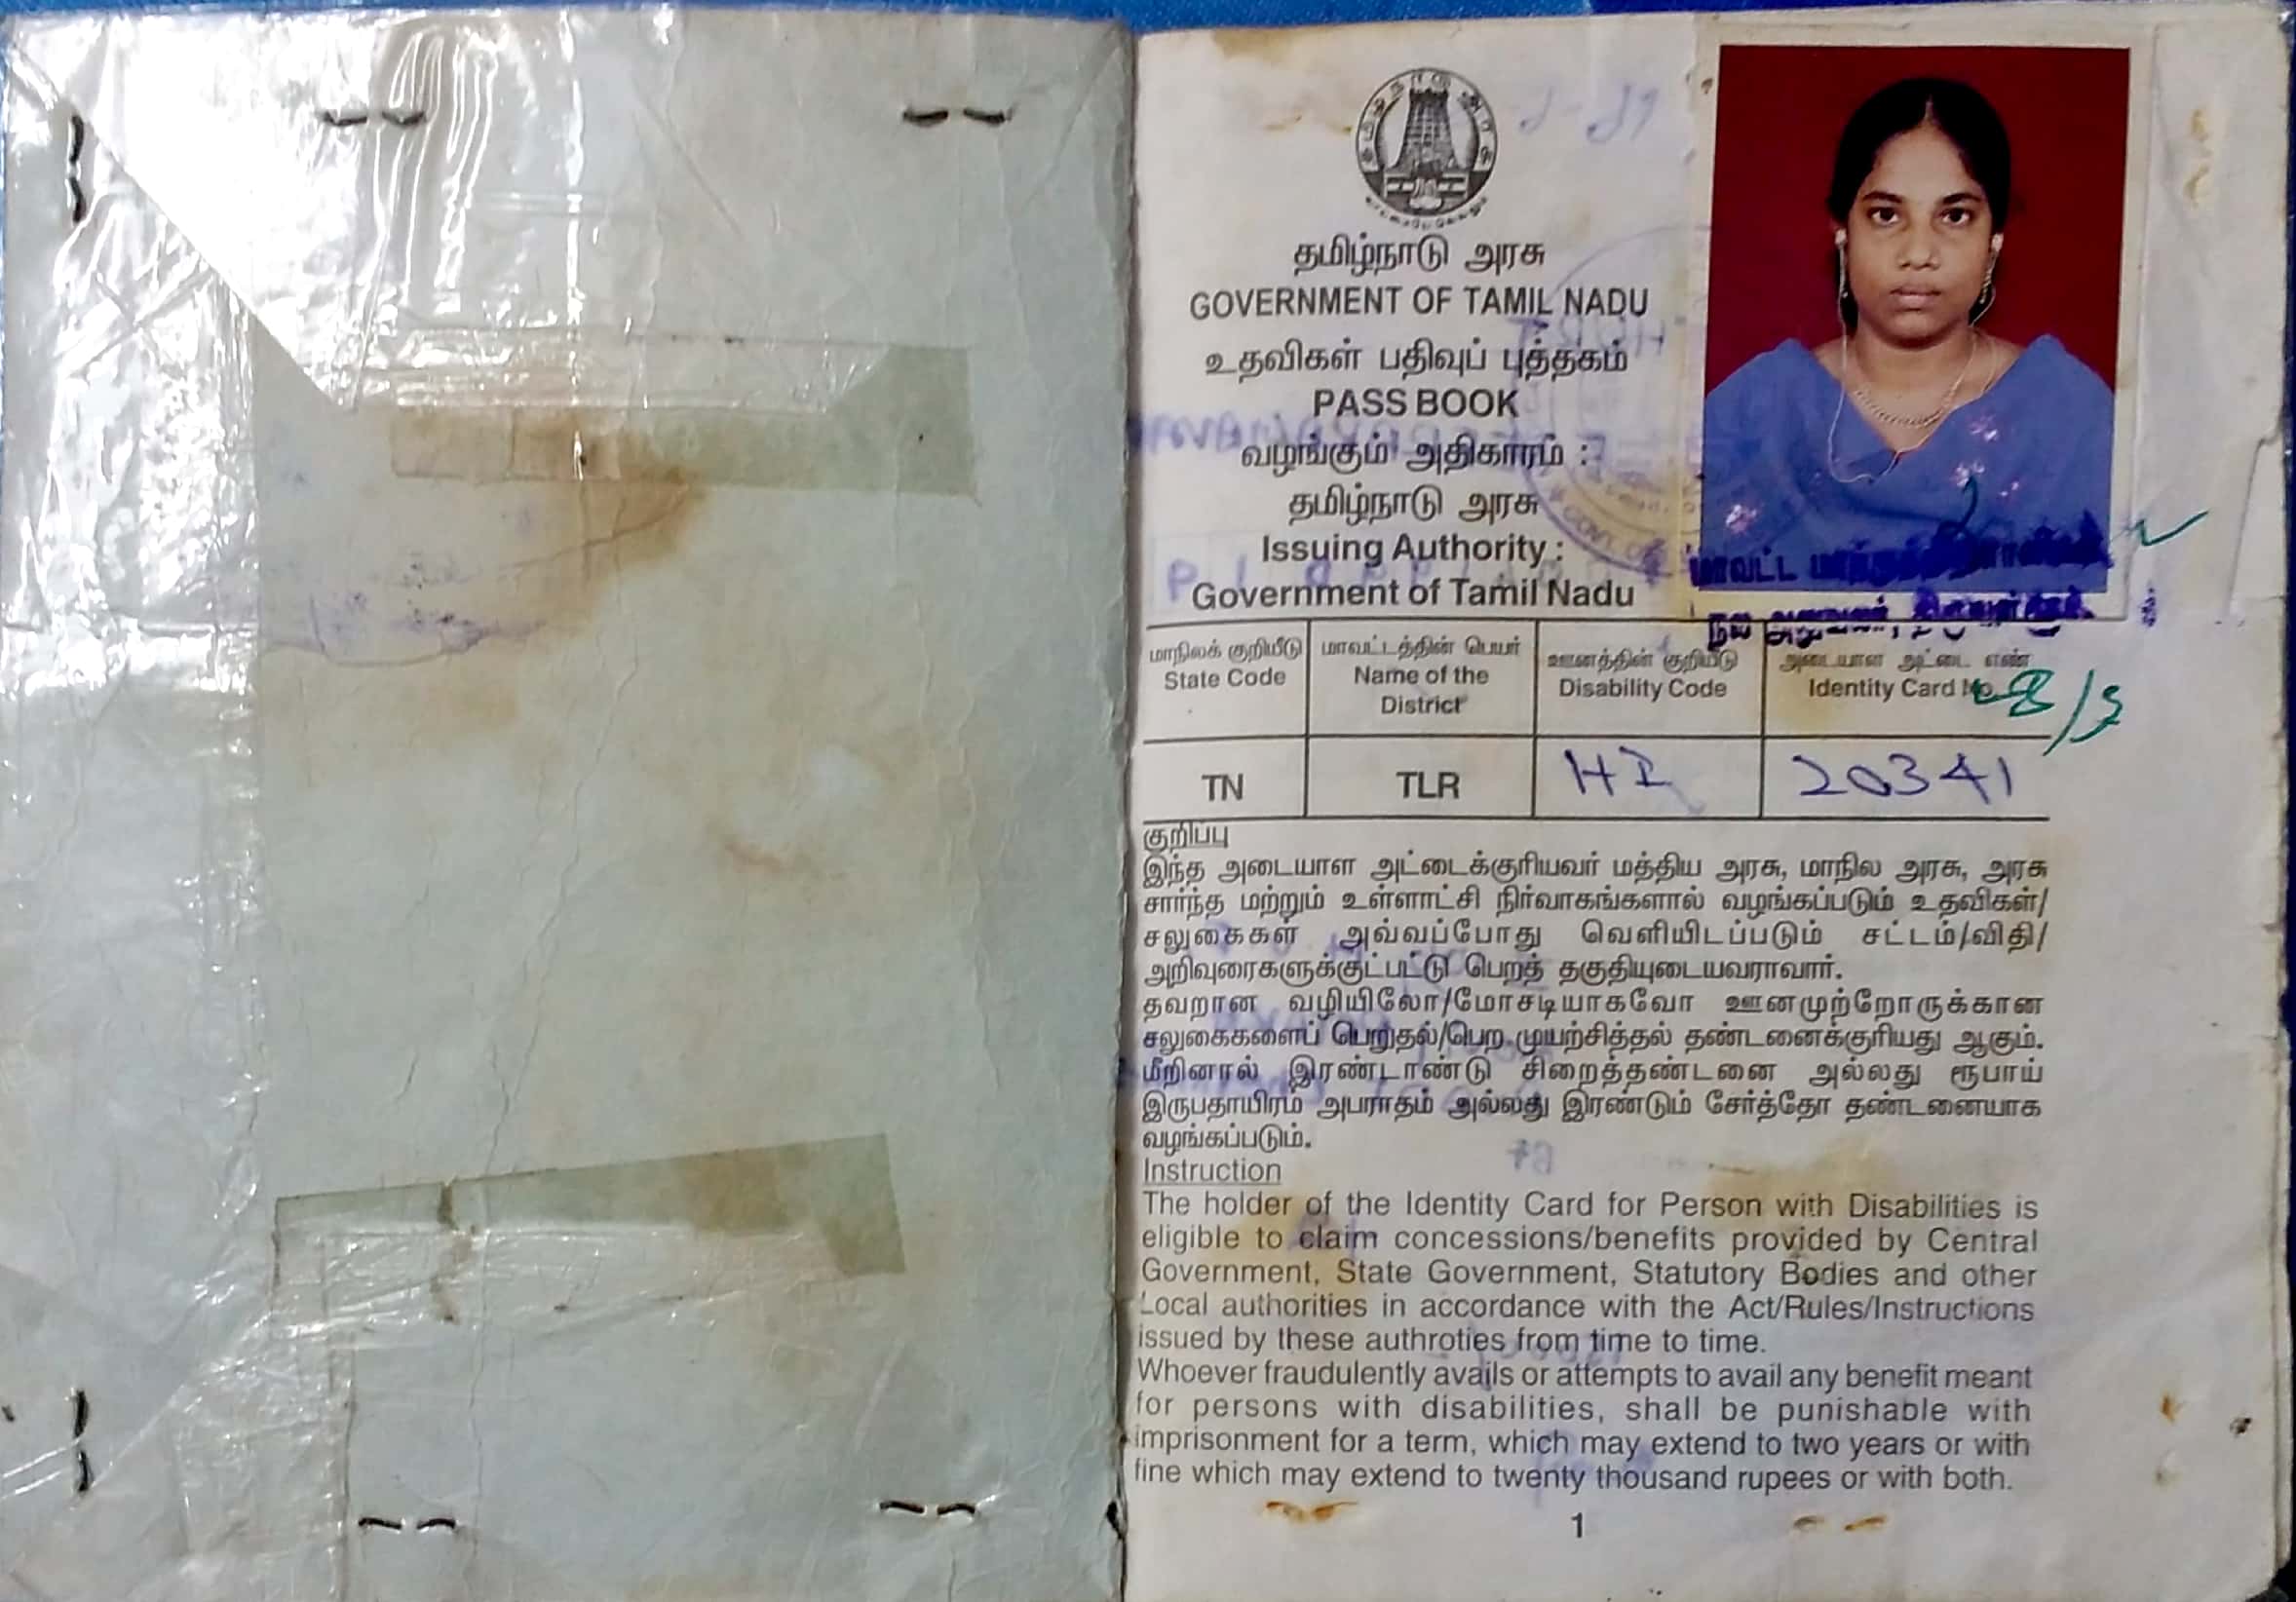 தமிழ்நாடு அரசு
GOVERNMENT OF TAMIL NADU
உதவிகள் பதிவுப் புத்தகம்
PASS BOOK
வழங்கும் அதிகாரம் :
தமிழ்நாடு அரசு
Issuing Authority :
Government of Tamil Nadu
மாவட்ட
நல அலுவலர்,
மாநிலக் குறியீடு மாவட்டத்தின் பெயர் ஊனத்தின் குறியீடு அடையாள அட்டை எண்
State Code Name of the District Disability Code Identity Card No.
TN TLR HI 20341
குறிப்பு
இந்த அடையாள அட்டைக்குரியவர் மத்திய அரசு, மாநில அரசு, அரசு
சார்ந்த மற்றும் உள்ளாட்சி நிர்வாகங்களால் வழங்கப்படும் உதவிகள்/
சலுகைகள் அவ்வப்போது வெளியிடப்படும் சட்டம்/விதி/
அறிவுரைகளுக்குட்பட்டு பெறத் தகுதியுடையவராவார்.
தவறான வழியிலோ/மோசடியாகவோ ஊனமுற்றோருக்கான
சலுகைகளைப் பெறுதல்/பெற முயற்சித்தல் தண்டனைக்குரியது ஆகும்.
மீறினால் இரண்டாண்டு சிறைத்தண்டனை அல்லது ரூபாய்
இருபதாயிரம் அபராதம் அல்லது இரண்டும் சேர்த்தோ தண்டனையாக
வழங்கப்படும்.
Instruction
The holder of the Identity Card for Person with Disabilities is
eligible to claim concessions/benefits provided by Central
Government, State Government, Statutory Bodies and other
Local authorities in accordance with the Act/Rules/Instructions
issued by these authroties from time to time.
Whoever fraudulently avails or attempts to avail any benefit meant
for persons with disabilities, shall be punishable with
imprisonment for a term, which may extend to two years or with
fine which may extend to twenty thousand rupees or with both.
1